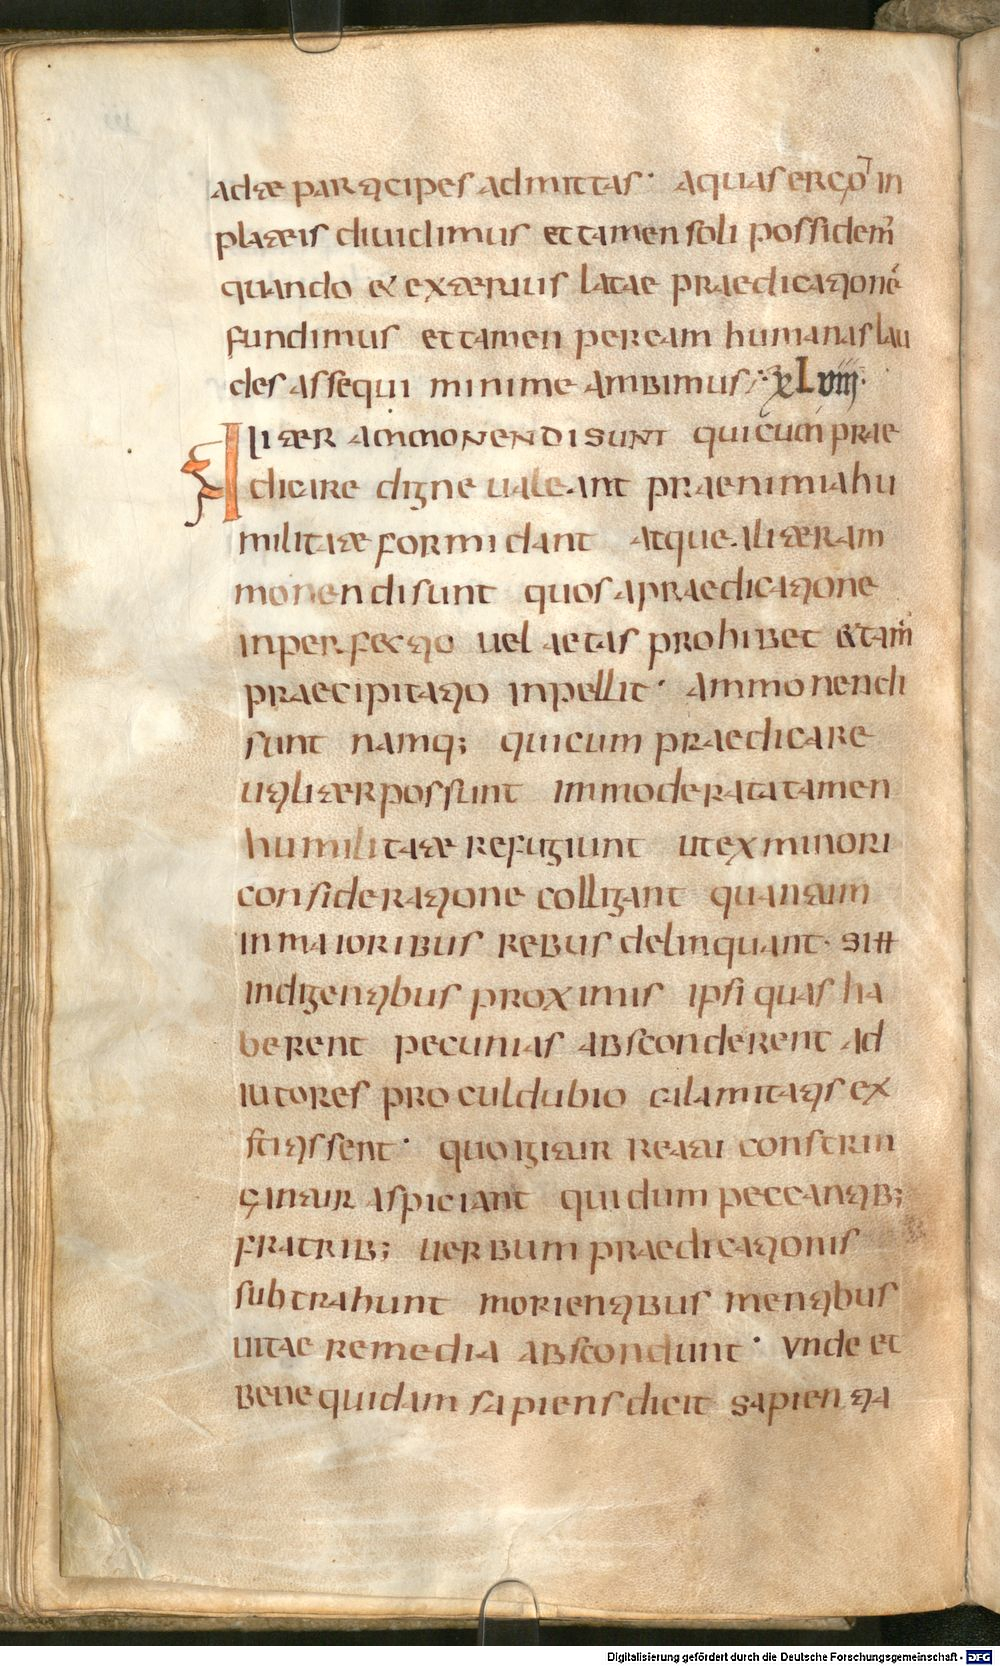 ad te participes admittas· aquas ergo in
plateis diuidimus et tamen soli possidem̄
quando & exterius latae praedicationē
fundimus et tamen per eam humanas lau
des assequi minime ambimus; xLviiii·
Aliter ammonendi sunt qui cum prae
dicare digne ualeant prae nimia hu
militate formidant atque aliter am
monendi sunt quos a praedicatione
inperfectio uel aetas prohibet & tam̄
praecipitatio inpellit· ammonendi
sunt namq; qui cum praedicare
utiliter possunt immoderata tamen
humilitate refugiunt ut ex minori
consideratione colligant quantum
in maioribus rebus delinquant· Si H
indigentibus proximis ipsi quas ha
berent pecunias absconderent ad
iutores proculdubio calamitatis ex
stitissent· quo igitur reatu constrin
gantur aspiciant qui dum peccantib;
fratrib; uerbum praedicationis
subtrahunt morientibus mentibus
uitae remedia abscondunt· Vnde et
bene quidam sapiens dicit sapientia
Digitalisierung gefördert durch die Deutsche Forschungsgemeinschaft - DFG